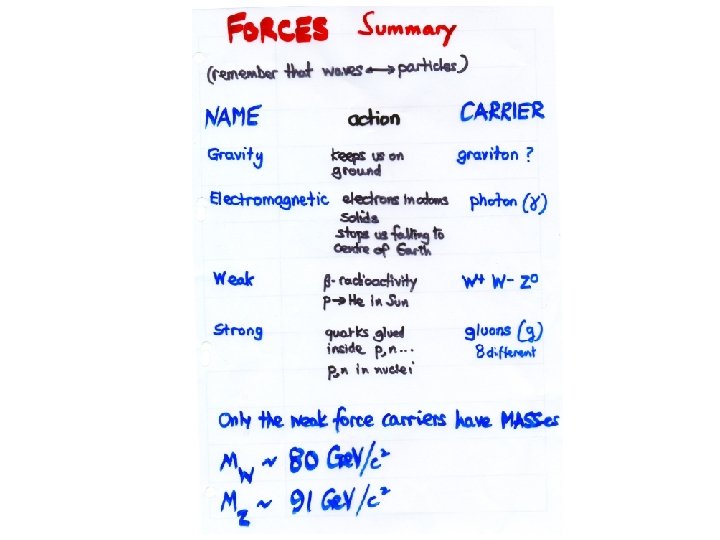 FORCES Summary
(remember that waves ↔ particles)
NAME action CARRIER
Gravity keeps us on ground graviton ?
Electromagnetic electrons in atoms solids stops us falling to centre of Earth photon (γ)
Weak β-radioactivity p→He in Sun W+ W- Z0
Strong quarks glued inside p,n... p,n in nuclei gluons (g) 8 different
Only the weak force carriers have MASSes
M_W ~ 80 GeV/c²
M_Z ~ 91 GeV/c²